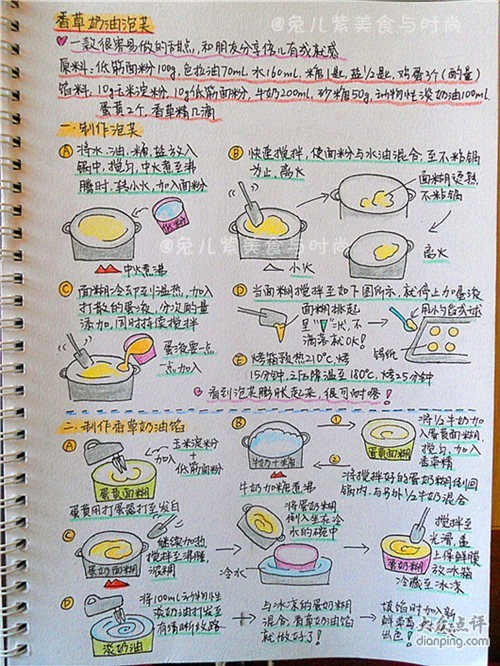 香草奶油泡芙
@兔儿紫美食与时尚
一款很容易做的甜点,和朋友分享倍儿有成就感
原料:低筋面粉100g,色拉油70ml,水160ml,糖1匙,盐1/2匙,鸡蛋3个(酌量)
馅料:10g玉米淀粉,10g低筋面粉,牛奶200ml,砂糖50g,动物性淡奶油100ml
蛋黄2个,香草精几滴
一.制作泡芙
A 将水、油、糖、盐放入
锅中,搅匀,中火煮至沸
腾时,转小火,加入面粉
低粉
中火煮沸
B 快速搅拌,使面粉与水油混合,至不粘锅
为止,离火
面糊边热
不粘锅
小火
离火
@兔儿紫美食与时尚
C 面糊冷却到温热,加入
打散的蛋液,分次酌量
添加,同时持续搅拌
蛋液要一点
一点加入
D 当面糊搅拌至如下图所示,就停止加蛋液
面糊挑起
呈"▼"状,不
滴落就OK!
用小勺舀成球
锡纸
E 烤箱预热210℃烤
15分钟,之后降温至180℃,烤25分钟
看到泡芙膨胀起来,很可耐唷!
二.制作香草奶油馅
A
玉米淀粉
加入
+
低筋面粉
蛋黄面糊
蛋黄用打蛋器打至发白
B
牛奶+米糖
牛奶加糖煮沸
①
②
蛋黄面糊
将1/2牛奶加
入蛋黄面糊,
搅匀,加入
香草精
将搅拌好的蛋奶面糊倒回
锅内,与另外1/2牛奶混合
C
蛋奶面糊
继续加热
搅拌至沸腾,
浓稠
将蛋奶糊
倒入坐在冷
水的碗中
冷水
蛋奶糊
搅拌至
光滑,盖
上保鲜膜
放冰箱
冷藏至冰凉
D
淡奶油
将100ml动物性
淡奶油打发至
有清晰纹路
与冰凉的蛋奶糊
混合,香草奶油馅
就做好了!
填馅时加入新
鲜草莓
出色!
大众点评
dianping.com